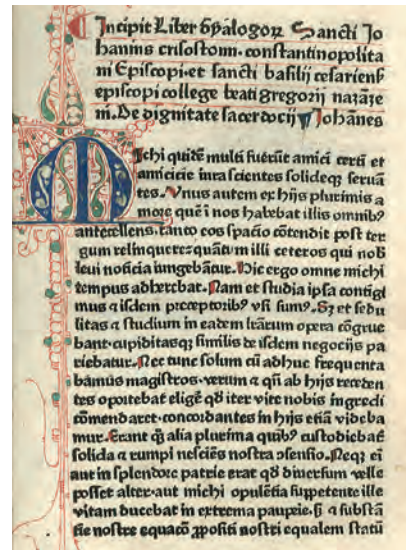 Incipit Liber dyalogorꝝ Sancti Jo
hannis crisostomi. constantinopolita
ni Episcopi. et sancti basilij cesarienẜ
episcopi college beati gregorij nazāze
ni. De dignitate sacerdocij Johānes
Michi quidē multi fuerūt amici certi et
amicicie iura scientes solideqꝫ seruā
tes. Vnus autem ex hijs plurimis a
more quē ī nos habebat illis omnibꝰ
antecellens. tanto eos spacio cōtendit post ter
gum relinquere: quātum illi ceteros qui nob
leui noticia iungebātur. Hic ergo omne michi
tempus adherebat. Nam et studia ipsa contigi
mus ⁊ iisdem preceptoribꝰ vsi sumꝰ. Sꝫ et sedu
litas ⁊ studium in eadem lr̄arum opera cōgrue
bant. cupiditasqꝫ similis de iisdem negocijs pa
riebatur. Nec tunc solum cū adhuc frequenta
bamus magistros. verum ⁊ qn̄ ab hijs receden
tes oportebat eligē qd̄ iter vite nobis ingredi
cōmendaret. concordantes in hijs etiā videba
mur. Erant qꝫ alia plurima quibꝰ custodiebat̄
solida ⁊ rumpi nesciēs nostra ↄsensio. Neqꝫ ei
aut in splendore patrie erat qd̄ diuersum velle
posset alter. aut michi opulētia suppetente ille
vitam ducebat in extrema paupeie. sꝫ ⁊ substā
tie nostre equacō ꝓpositi nostri equalem statū